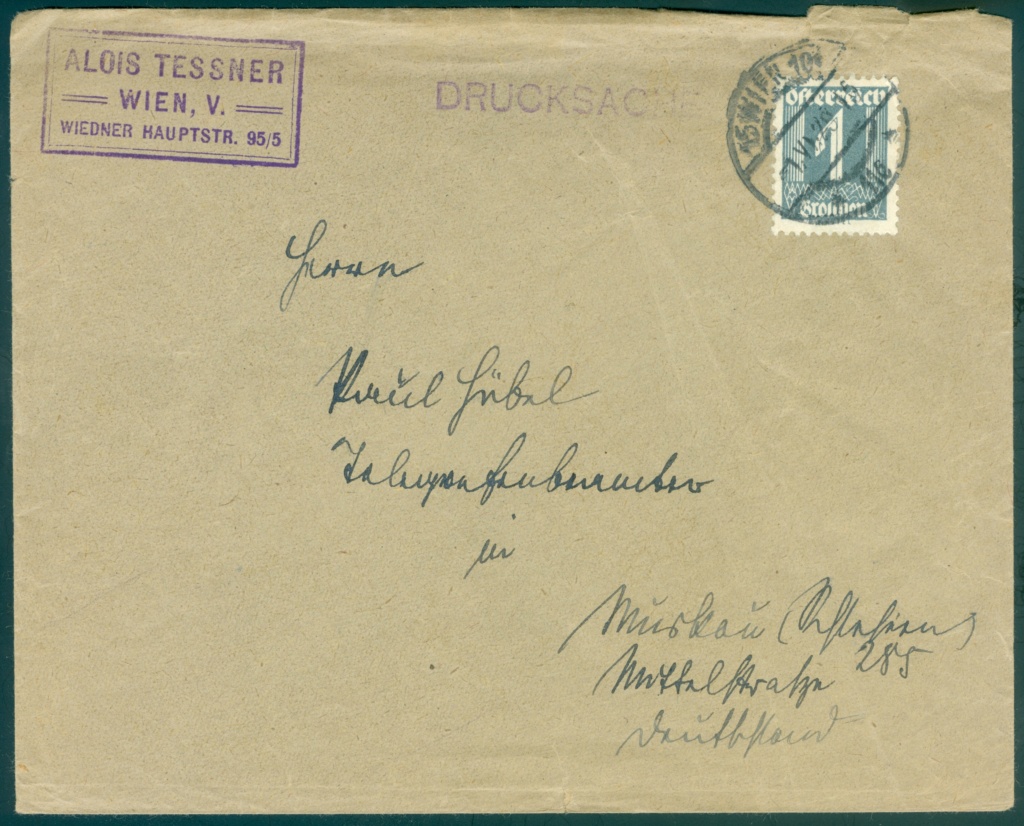 ALOIS TESSNER
WIEN, V.
WIEDNER HAUPTSTR. 95/5
DRUCKSACHE
15 WIEN 101
Österreich
1
Groschen
Herrn
Paul Hübel
Telegrafenbeamter
in
Muskau (Schlesien)
Mittelstraße 285
Deutschland